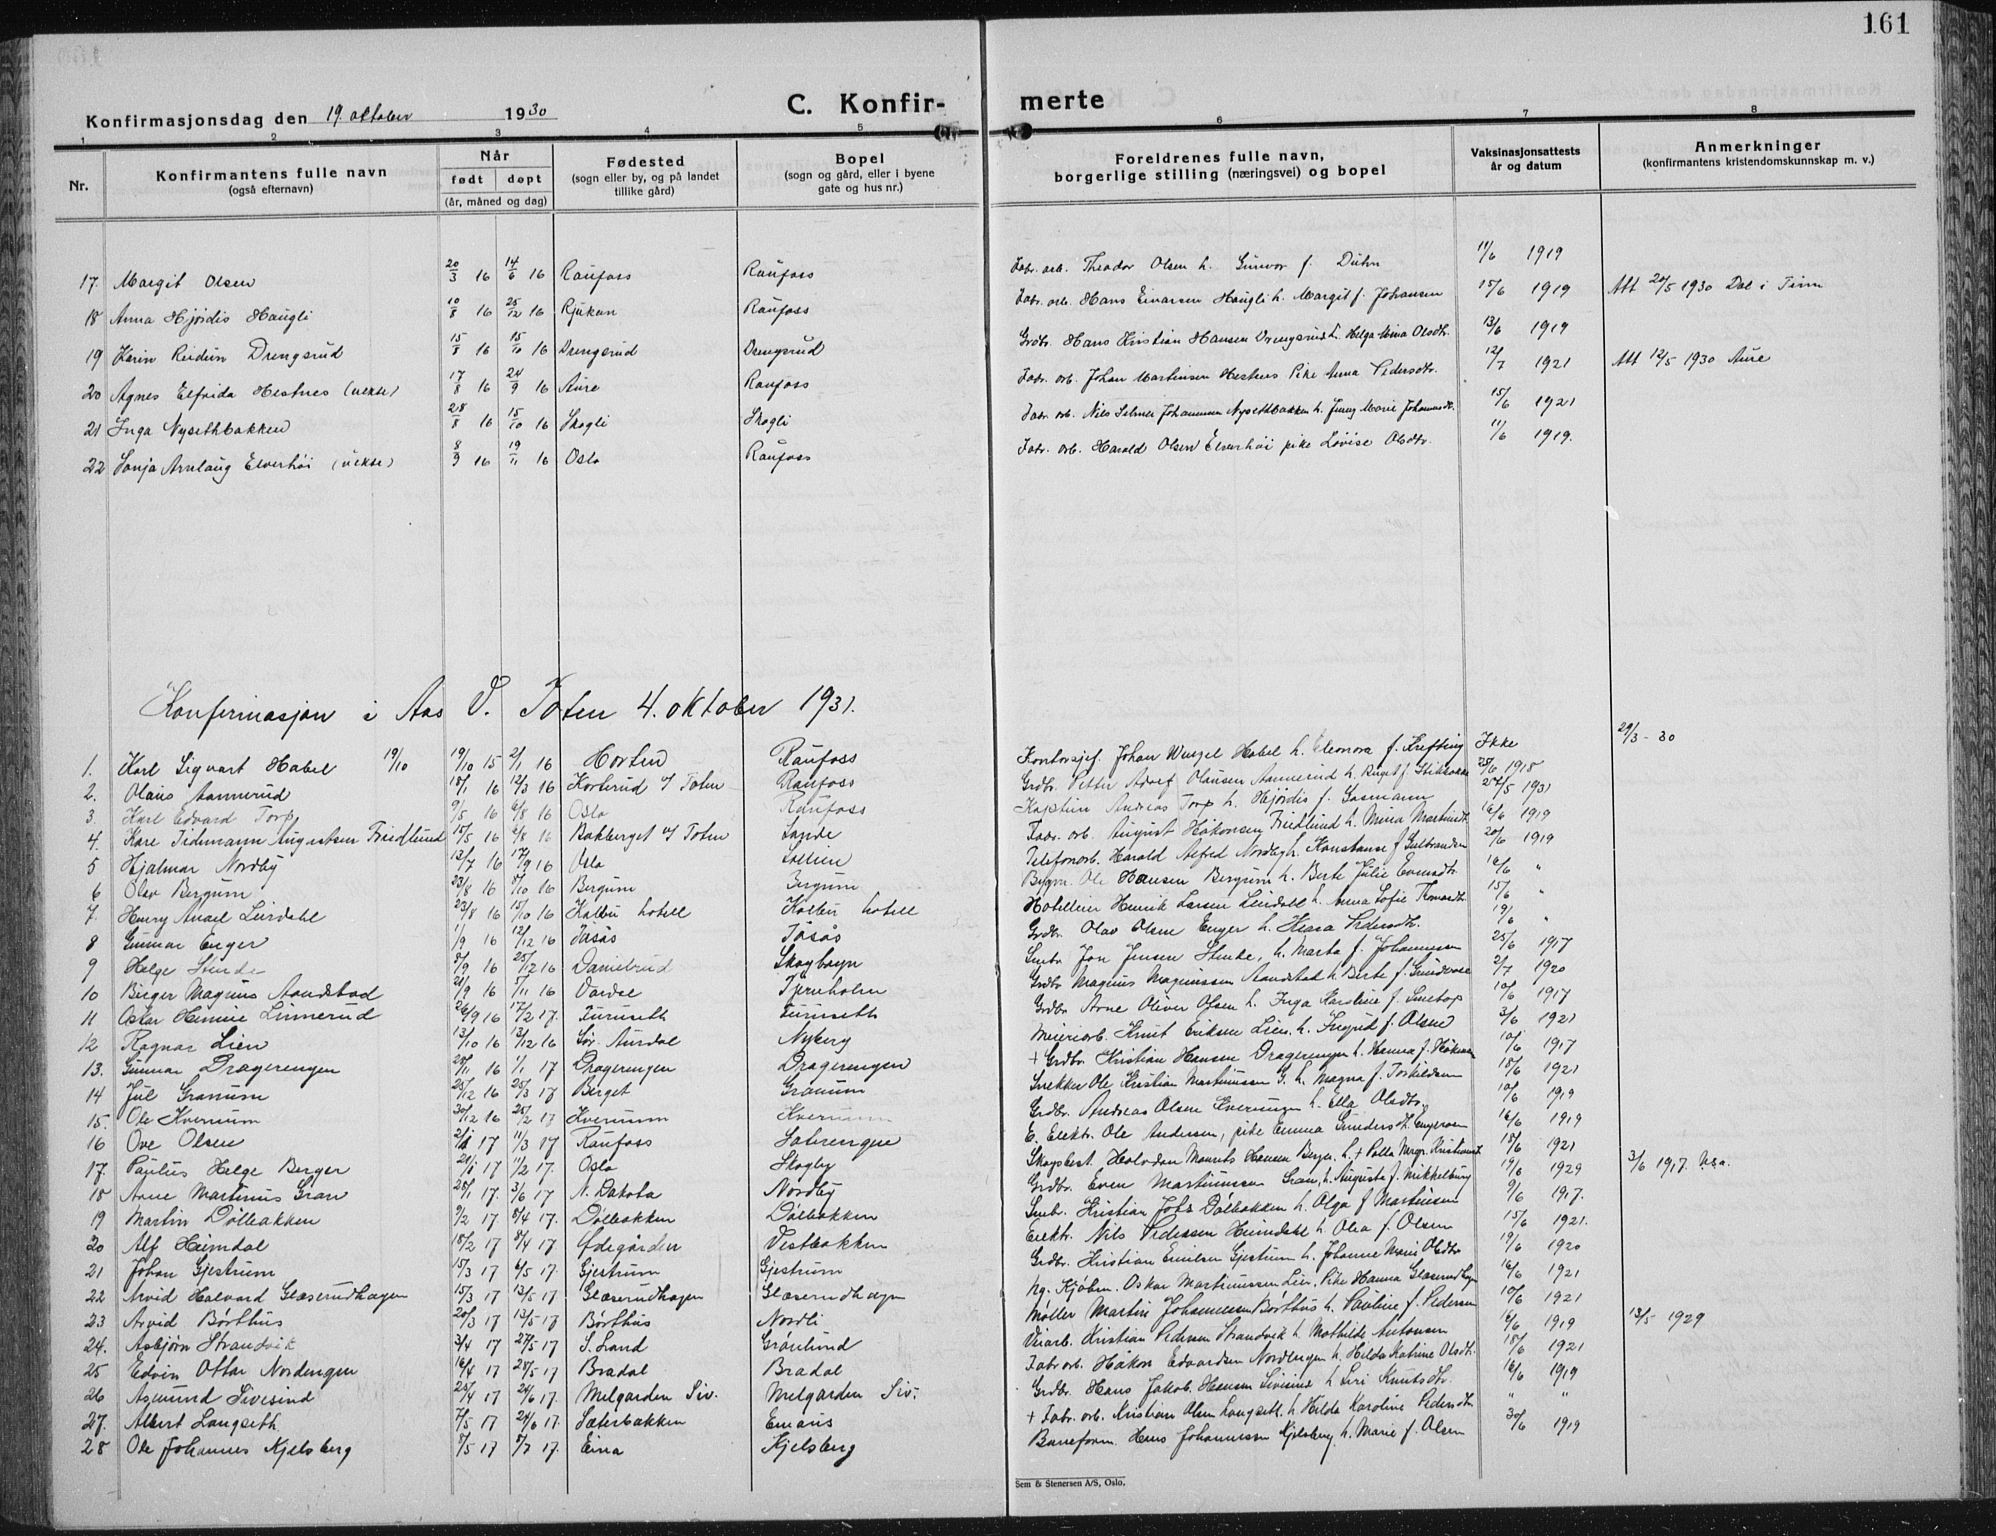 161
Konfirmasjonsdag den 19. oktober 1930 C. Konfir- merte
1 2 3 4 5 6 7 8
Nr. Konfirmantens fulle navn (også efternavn) Når født døpt (år, måned og dag) Fødested (sogn eller by, og på landet tillike gård) Bopel (sogn og gård, eller i byene gate og hus nr.) Foreldrenes fulle navn, borgerlige stilling (næringsvei) og bopel Vaksinasjonsattests år og datum Anmerkninger (konfirmantens kristendomskunnskap m. v.)
17 Margit Olsen 20/3 16 14/6 16 Raufoss Raufoss Fabr. arb. Theodor Olsen h. Gunvor f. Duhn 11/6 1919
18 Anna Hjørdis Haugli 10/8 16 25/12 16 Rjukan Raufoss Fabr. arb. Hans Einarsen Haugli h. Margit f. Johansen 15/6 1919 Att 20/5 1930 Dal i Tinn
19 Karin Reidun Drengsrud 15/8 16 15/10 16 Drengsrud Drengsrud Grdbr. Hans Kristian Hansen Drengsrud h. Helga Mina Olsdtr. 13/6 1919
20 Agnes Elfrida Hestnes (uekte) 17/8 16 24/9 16 Aure Raufoss Fabr. arb. Johan Martinsen Hestnes Pike Anna Pedersdtr. 12/7 1921 Att 12/5 1930 Aure
21 Inga Nysethbakken 28/8 16 15/10 16 Skogli Skogli Fabr. arb. Nils Selmer Johannesen Nysethbakken h. Jenny Marie Johannesdtr. 15/6 1921
22 Sonja Arnlaug Elverhøi (uekte) 8/9 16 19/11 16 Oslo Raufoss Fabr. arb. Harald Olsen Elverhøi pike Lovise Olsdtr. 11/6 1919.
Konfirmasjon i Aas V. Toten 4. oktober 1931.
1. Karl Sigvart Habel 19/10 19/10 15 2/1 16 Horten Raufoss Kontorsjef. Johan Wenzel Habel h. Eleonora f. Krefting Ikke 29/3 - 30
2. Olaus Aannerud 18/1 16 12/3 16 Korterud V Toten Raufoss Grdbr. Petter Adolf Olausen Aannerud h. Birgit f. Stikbakke 28/6 1918
3. Karl Edvard Torp 9/5 16 6/8 16 Oslo Raufoss Kaptein Andreas Torp h. Hjørdis f. Gasmann 27/5 1931
4. Kåre Tidemann Augustsen Friedlund 15/5 16 6/8 16 Bakberget V Toten Sande Fabr. arb. August Håkonsen Friedlund h. Mina Martinsdtr. 16/6 1919
5 Hjalmar Nordby 12/7 16 17/9 16 Oslo Sollien Telefonarb. Harald Alfred Nordby h. Konstanse f Gulbrandsen 20/6 1919
6 Olav Bergum 23/8 16 8/10 16 Bergum Bergum Bygm. Ole Hansen Bergum h. Berte Julie Evensdtr. 16/6 "
7. Henry Amael Leirdahl 23/8 16 15/10 16 Kolbu hotell Kolbu hotell Hotelleier Henrik Larsen Leirdahl h. Anna Sofie Thorvaldsdtr. 15/6 "
8 Gunnar Enger 1/9 16 12/12 16 Tåsås Tåsås Grdbr. Olav Olsen Enger h. Klara Pedersdtr. 19/6 "
9 Helge Stende 8/9 16 25/12 16 Danielrud Skogbøyn Småbr Jon Jensen Stenke, h. Marta f. Johannessen 25/6 1917
10 Birger Magnus Aandstad 21/9 16 5/11 16 Vardal Tjernholm Grdbr Magnus Magnussen Aandstad h Berte f. Grundvåse 2/7 1920
11 Oskar Henrie Linnerud 26/9 16 17/2 17. Furuseth Furuseth Grdbr. Arne Oliver Olsen h. Inga Karoline f. Smebyø 10/6 1917
12 Ragnar Lien 13/10 16 13/12 16 Sør. Aurdal Nyberg Meieriarb. Knut Eriksen Lien. h. Ingrid f. Olsen 3/6 1921
13. Gunnar Dragerengen 20/11 16 1/1 17 Dragerengen Dragerengen + Grdbr. Kristian Hansen Dragerengen h. Hanna f. Håkensen 10/6 1917
14 Jul Granum 25/12 16 25/3 17 Berget Granum Snekker Ole Kristian Martinussen G. h. Magna f. Torkildsen 18/6 1921
15. Ole Kvernum 30/12 16 25/2 17 Kvernum Kvernum Grdbr. Andreas Olsen Kvernum h. Ella Olsdtr. 10/6 1919
16 Ove Olsen 2/1 17 11/3 17 Raufoss Sæterengen E. Elektr. Ole Andersen, pike Emma Gundersdt. Engeroen 16/6 1919
17. Paulus Helge Berger 20/1 17 11/2 17. Oslo Skogby Skogsbest. Halvdan Maurits Hansen Berger. h. + Palla Margr. Kristiansd 18/6 1921
18 Arne Martinus Gran 28/1 17. 3/6 17 N. Dakota Nordby Grdbr. Even Martinussen Gran, h. Augusta f. Mikkelborg 19/6 1929 3/6 1917. Usa.
19 Martin Dølbakken 9/2 17 8/4 17. Dølbakken Dølbakken Småbr. Kristian Johs Dølbakken h. Olga f Martinsen 9/6 1917.
20 Alf Heimdal 18/2 17 8/4 17 Ødegården Vestbakken Elektr. Nils Pedersen Heimdahl h Olea f. Olsen 15/6 1921.
21 Johan Gjestrum 15/3 17 6/5 17. Gjestrum Gjestrum Grdbr. Kristian Emilsen Gjestrum h. Johanne Marie Olsdtr 19/6 1920
22 Arvid Halvard Glæserudhagen 15/3 17 13/5 17 Glæserudhagen Glæserudhagen Ng. Kjøbm. Oskar Martinussen Lien. Pike Hanna Glæserudhagen 16/6 1921
23 Arvid Børthus 20/3 17 13/5 17 Børthus Nordli Møller Martin Johannessen Børthus h. Pauline f. Pedersen 10/6 1921
24. Asbjørn Strandvik 3/4 17 27/5 17 S. Land Grønlund Veiarb. Kristian Pedersen Strandvik h Mathilde Antonsen 16/6 1919 13/5 1929
25 Edvin Ottar Nordengen 16/4 17 28/5 17 Bradal Bradal Fabr arb. Håkon Edvardsen Nordengen h, Hilda Katrine Olsdtr. 18/6 1921
26 Asmund Sivesind 25/4 17 24/6 17. Melgarden Siv. Melgarden Siv. Grdbr. Hans Jakob. Hansen Sivesind h Siri Knutsdtr. 16/6 1919
27. Albert Langseth 7/5 17 24/6 17. Sæterbakken Emaus + Fabr. arb. Kristian Olsen Langseth. h. Hilda Karoline Pedersdtr " "
28 Ole Johannes Kjelsberg 8/5 17 8/7 17. Eina Kjelsberg Baneform. Hans Johannessen Kjelsberg, h. Marie f. Olsen 30/6 1919
Sem & Stenersen A/S, Oslo.